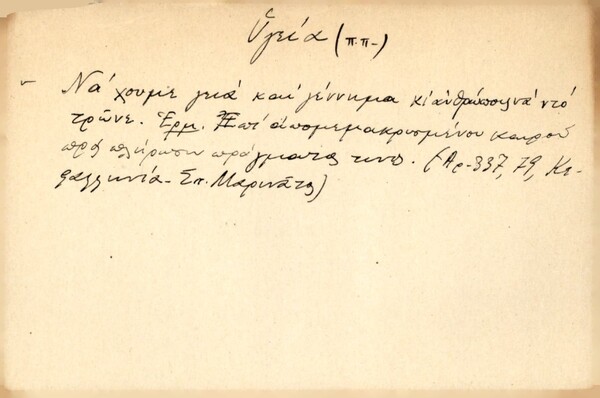 Ὑγεία (π.π-)
Νά 'χουμε γειά καί γέννημα κι' ἀνθρώποι νά ντό
τρῶνε. Ἑρμ. Ἐπί ἀπομεμακρυσμένου καιροῦ
πρός πλήρωσιν πράγματός τινο. (Αρ. 337, 79, Κε-
φαλληνία - Σπ. Μαρινᾶτος)